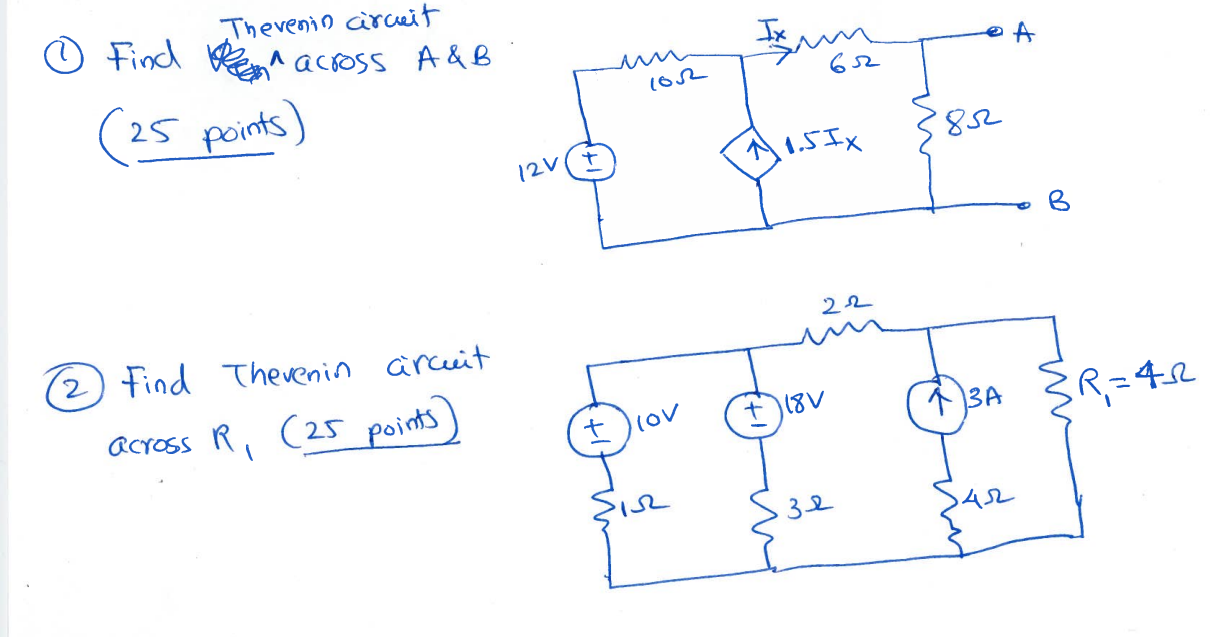 Thevenin circuit
① Find ^ across A & B
(25 points)
10Ω
Ix
6Ω
A
12V
+
-
1.5Ix
8Ω
B
② Find Thevenin circuit
across R₁ (25 points)
2Ω
+
-
10V
+
-
18V
3A
R₁ = 4Ω
1Ω
3Ω
4Ω